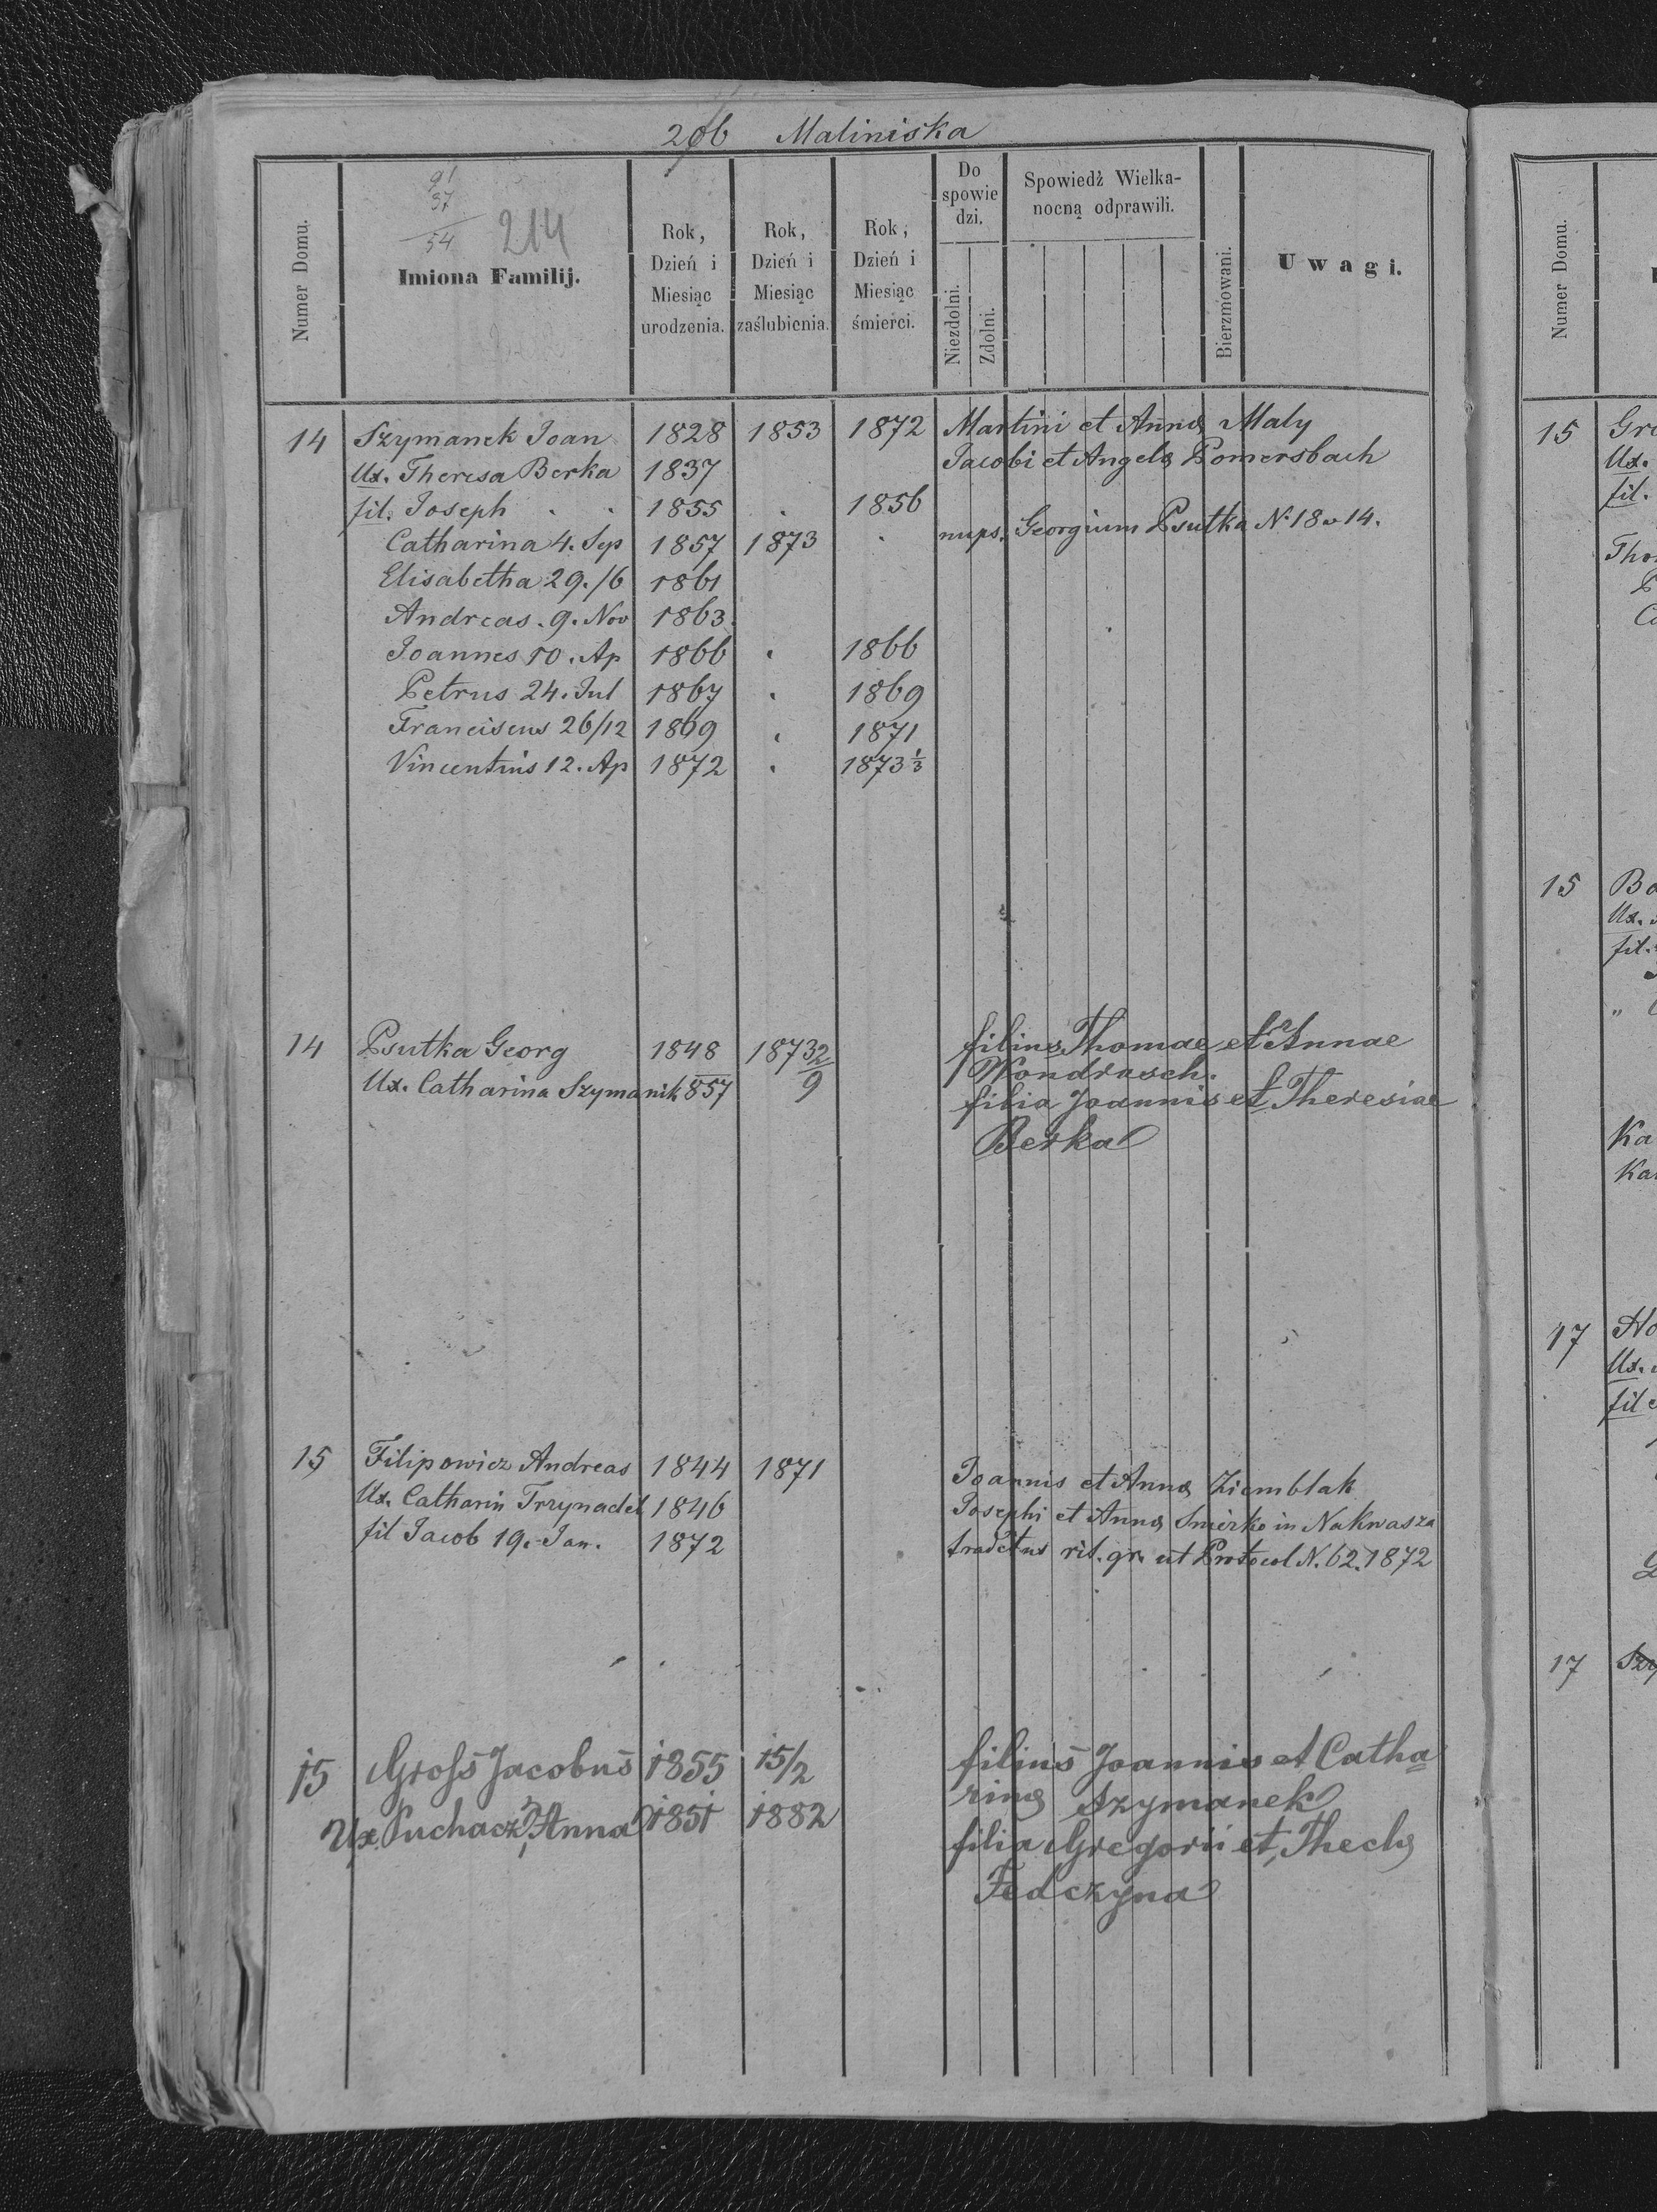 206 Maliniska
91
37
54 214
Numer Domu.
Imiona Familij.
Rok, Dzień i Miesiąc urodzenia.
Rok, Dzień i Miesiąc zaślubienia.
Rok, Dzień i Miesiąc śmierci.
Do spowiedzi.
Niezdolni.
Zdolni.
Spowiedź Wielkanocną odprawili.
Bierzmowani.
Uwagi.
14 Szymanek Joan 1828 1853 1872 Martini et Annæ Maly
Ux. Theresa Berka 1837 Jacobi et Angelæ Pomersbach
fil. Joseph . . 1855 . 1856
Catharina 4. Sep 1857 1873 . nups. Georgium Psutka N. 18 v 14.
Elisabetha 29./6 1861
Andreas . 9. Nov 1863.
Joannes 10. Ap 1866 . 1866
Petrus 24. Jul 1867 . 1869
Franciscus 26/12 1869 . 1871
Vincentius 12. Ap 1872 . 1873 1/3
14 Psutka Georg 1848 1873 2/9 filius Thomae et Annae
Wondrasch.
Ux. Catharina Szymanik 857 filia Joannis et Theresiae
Berka
15 Filipowicz Andreas 1844 1871 Joannis et Annæ Ziemblak
Ux. Catharin Trzynadel 1846 Josephi et Annæ Smerko in Nakwasza
fil Jacob 19. Jan. 1872 tradctus rit. gr. ut Protocol N. 62. 1872
15 Groſs Jacobus 1855 15/2 filius Joannis et Catha=
rinæ Szymanek
Ux. Puchacz Anna 1851 1882 filia Gregorii et Theclæ
Fedczyna
Numer Domu.
15 Gr
Ux.
fil.
Tho
P
Ca
15 Ba
Ux.
fil.
Ka
Ka
17 Ho
Ux.
fil
17 Szy